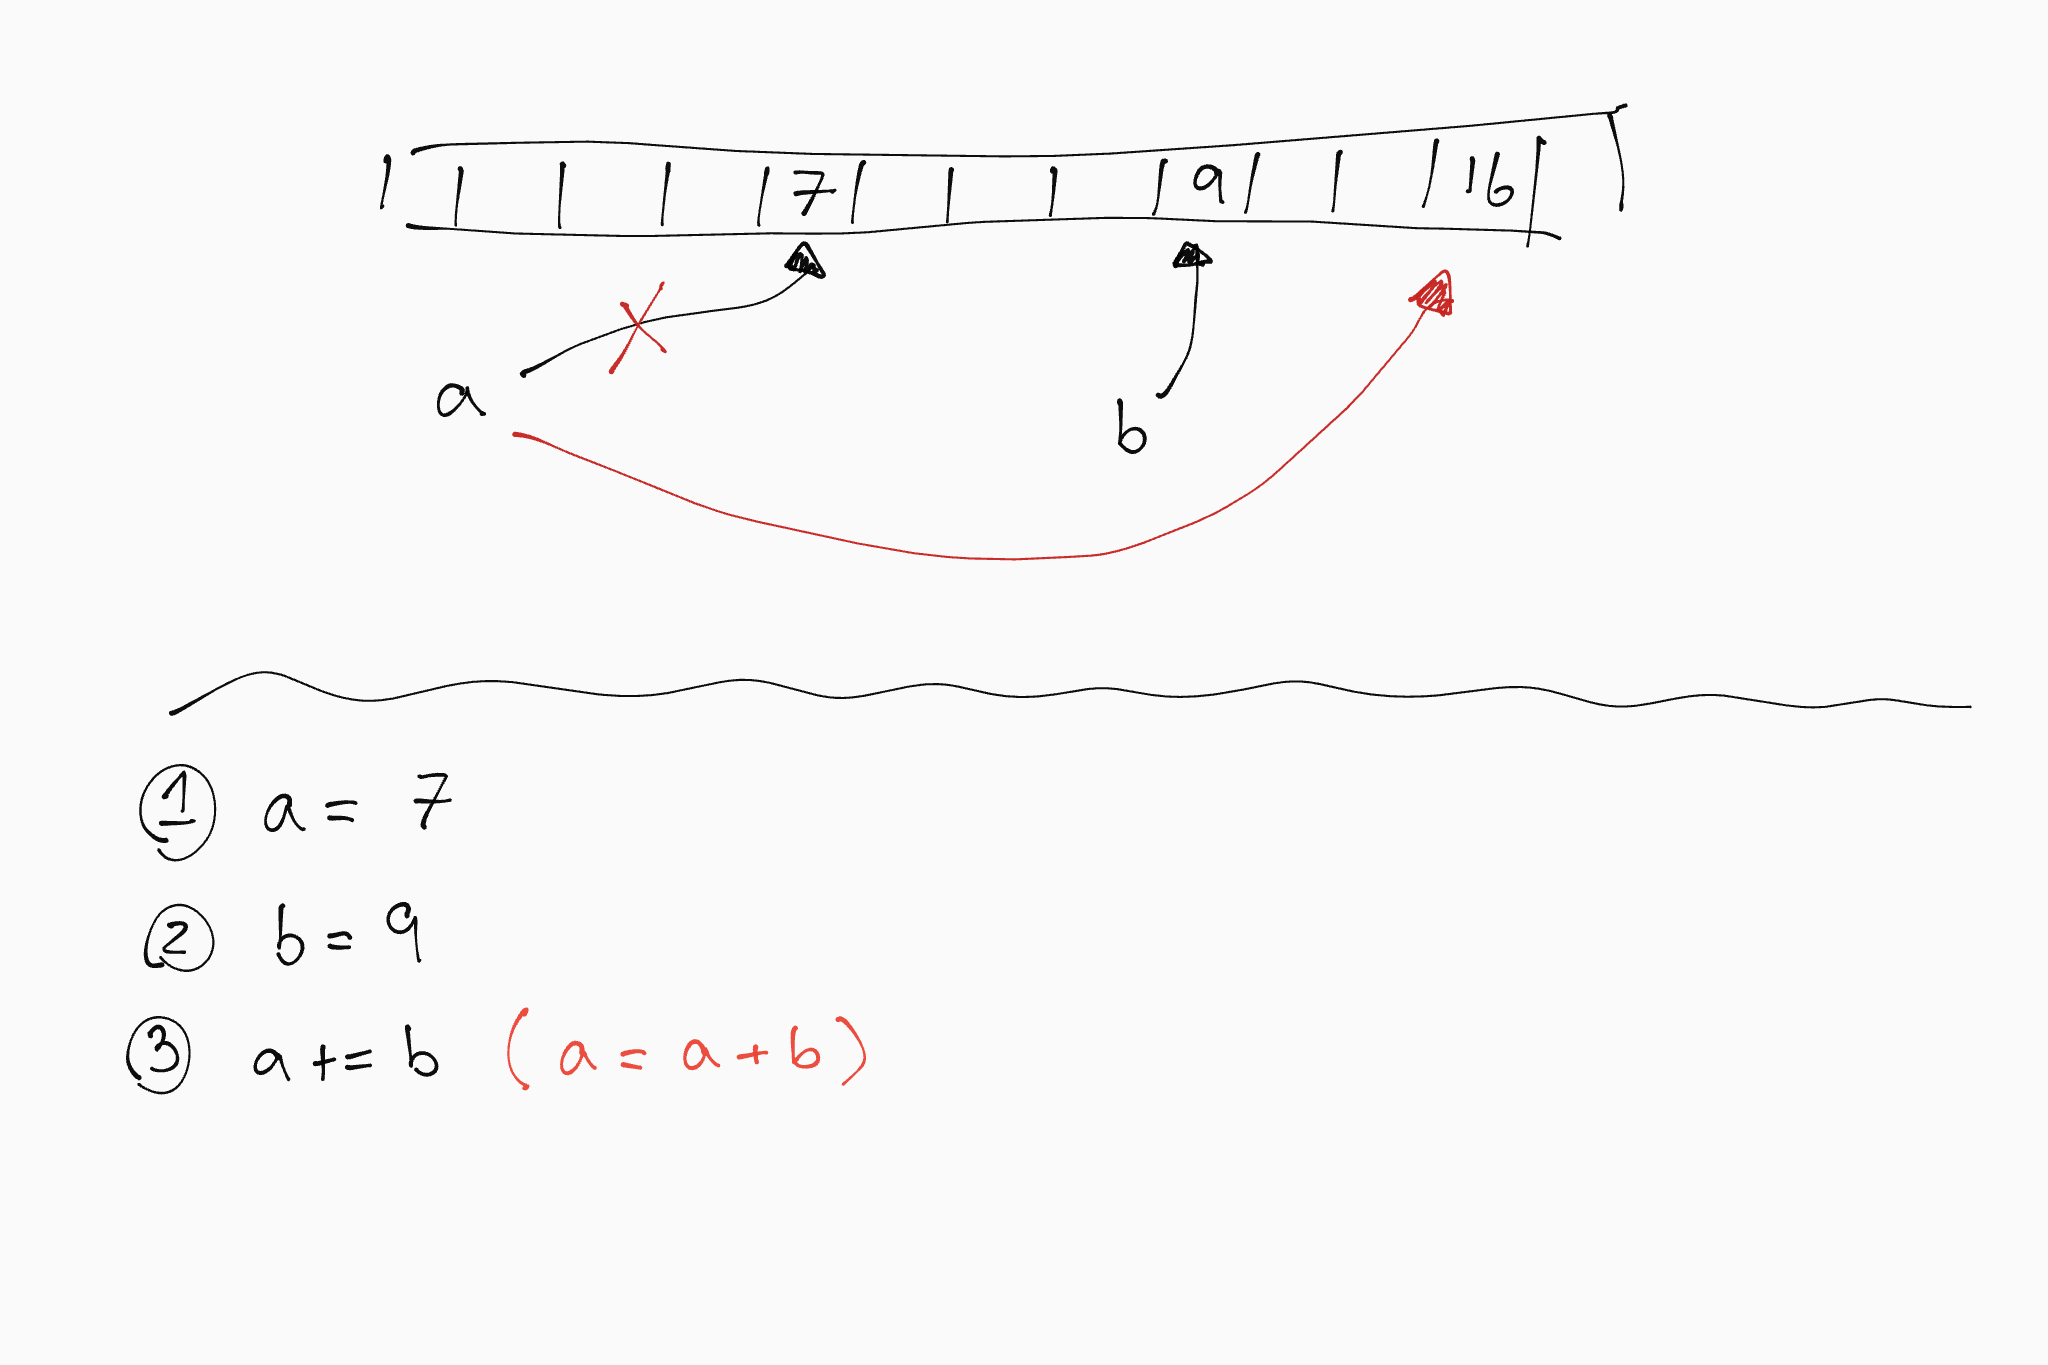 7 9 16
a
b
1 a = 7
2 b = 9
3 a += b (a = a + b)